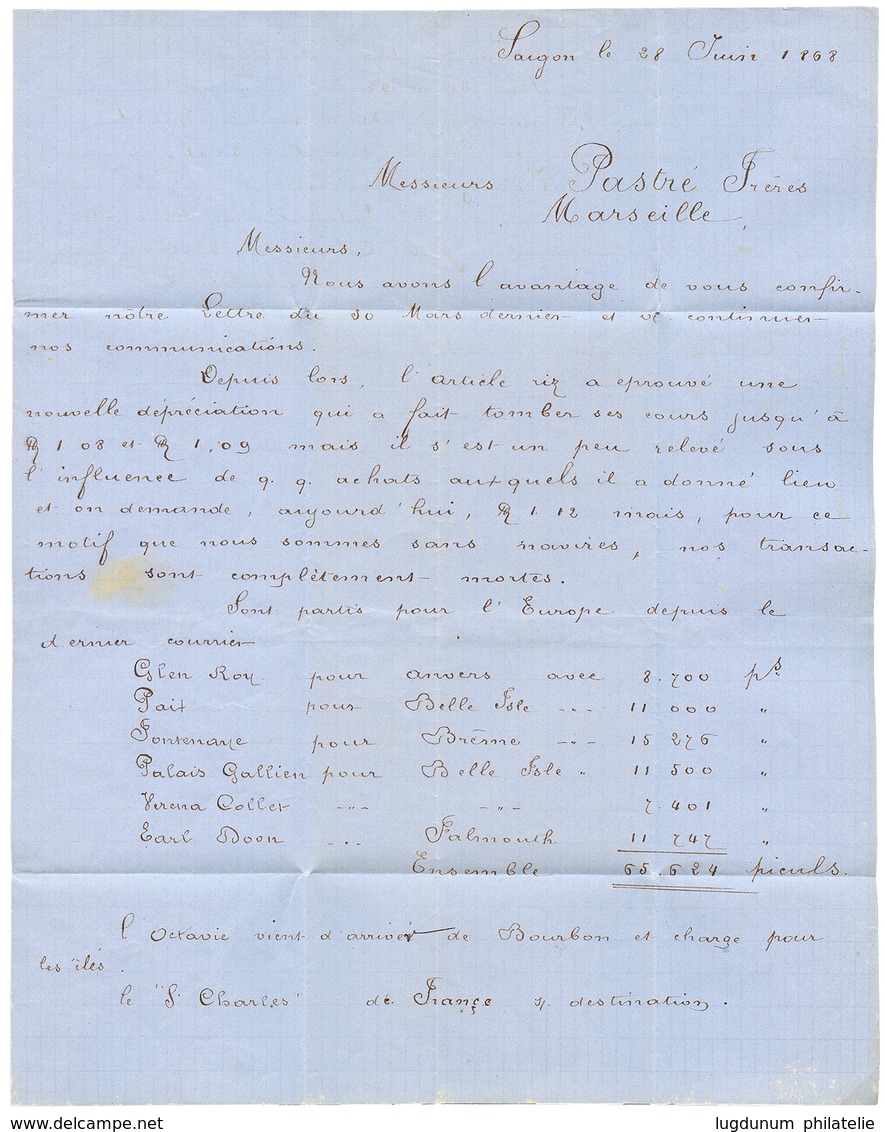 Saigon le 28 Juin 1868
Messieurs Pastré Frères
Marseille,
Messieurs,
Nous avons l'avantage de vous confir-
mer nôtre Lettre du 30 Mars dernier et de continuer
nos communications.
Depuis lors, l'article riz a eprouvé une
nouvelle dépréciation qui a fait tomber ses cours jusqu'à
1 08 et 1,09 mais il s'est un peu relevé sous
l'influence de q. q. achats auxquels il a donné lieu
et on demande, aujourd'hui, 1 12 mais, pour ce
motif que nous sommes sans navires, nos transac-
tions sont complètement mortes.
Sont partis pour l'Europe depuis le
dernier courrier
Glen Roy pour anvers avec 8.700 pls
Paix pour Belle Isle -"- 11 000 "
Fontenaye pour Brême -"- 15 276 "
Palais Gallien pour Belle Isle " 11 500 "
Verena Collet -"- -"- 7.401 "
Earl Doon -"- Falmouth 11 747 "
Ensemble 65.624 piculs.
l'Octavie vient d'arriver de Bourbon et charge pour
les îles.
le "St Charles" de France s/ destination.
www.delcampe.net
lugdunum philatelie